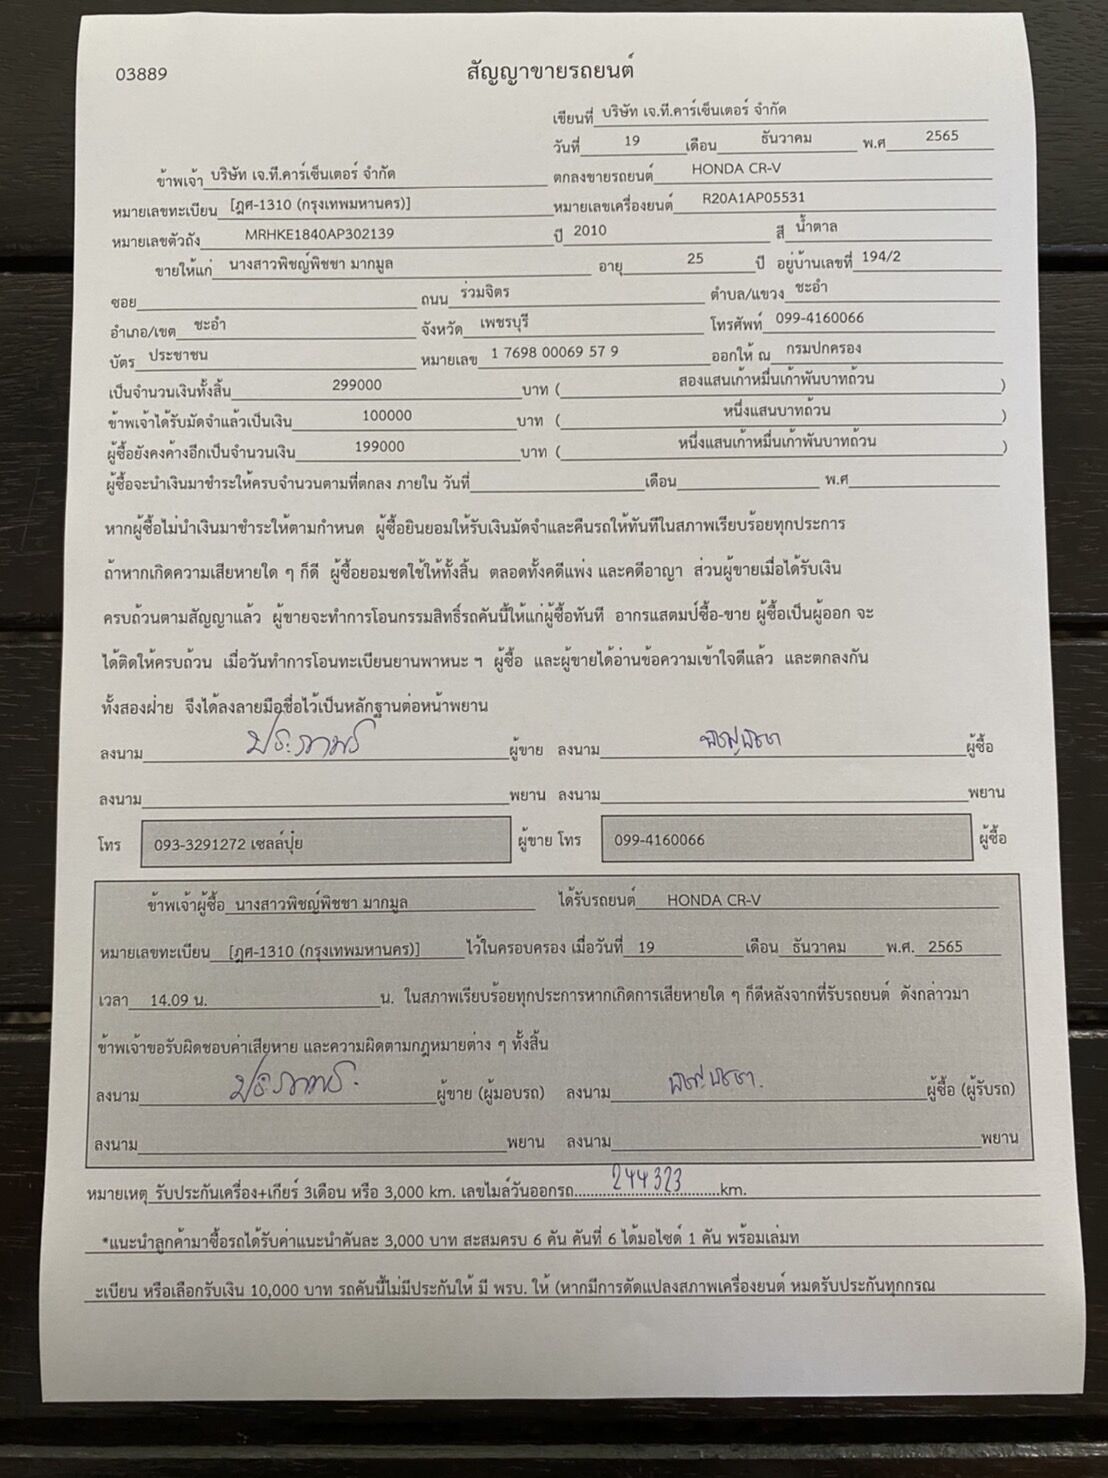 03889
สัญญาขายรถยนต์
เขียนที่ บริษัท เจ.ที.คาร์เซ็นเตอร์ จำกัด
วันที่ 19 เดือน ธันวาคม พ.ศ 2565
ข้าพเจ้า บริษัท เจ.ที.คาร์เซ็นเตอร์ จำกัด ตกลงขายรถยนต์ HONDA CR-V
หมายเลขทะเบียน [ฎศ-1310 (กรุงเทพมหานคร)] หมายเลขเครื่องยนต์ R20A1AP05531
หมายเลขตัวถัง MRHKE1840AP302139 ปี 2010 สี น้ำตาล
ขายให้แก่ นางสาวพิชญ์พิชชา มากมูล อายุ 25 ปี อยู่บ้านเลขที่ 194/2
ซอย ถนน ร่วมจิตร ตำบล/แขวง ชะอำ
อำเภอ/เขต ชะอำ จังหวัด เพชรบุรี โทรศัพท์ 099-4160066
บัตร ประชาชน หมายเลข 1 7698 00069 57 9 ออกให้ ณ กรมปกครอง
เป็นจำนวนเงินทั้งสิ้น 299000 บาท ( สองแสนเก้าหมื่นเก้าพันบาทถ้วน )
ข้าพเจ้าได้รับมัดจำแล้วเป็นเงิน 100000 บาท ( หนึ่งแสนบาทถ้วน )
ผู้ซื้อยังคงค้างอีกเป็นจำนวนเงิน 199000 บาท ( หนึ่งแสนเก้าหมื่นเก้าพันบาทถ้วน )
ผู้ซื้อจะนำเงินมาชำระให้ครบจำนวนตามที่ตกลง ภายใน วันที่ เดือน พ.ศ
หากผู้ซื้อไม่นำเงินมาชำระให้ตามกำหนด ผู้ซื้อยินยอมให้รับเงินมัดจำและคืนรถให้ทันทีในสภาพเรียบร้อยทุกประการ
ถ้าหากเกิดความเสียหายใด ๆ ก็ดี ผู้ซื้อยอมชดใช้ให้ทั้งสิ้น ตลอดทั้งคดีแพ่ง และคดีอาญา ส่วนผู้ขายเมื่อได้รับเงิน
ครบถ้วนตามสัญญาแล้ว ผู้ขายจะทำการโอนกรรมสิทธิ์รถคันนี้ให้แก่ผู้ซื้อทันที อากรแสตมป์ซื้อ-ขาย ผู้ซื้อเป็นผู้ออก จะ
ได้ติดให้ครบถ้วน เมื่อวันทำการโอนทะเบียนยานพาหนะ ฯ ผู้ซื้อ และผู้ขายได้อ่านข้อความเข้าใจดีแล้ว และตกลงกัน
ทั้งสองฝ่าย จึงได้ลงลายมือชื่อไว้เป็นหลักฐานต่อหน้าพยาน
ลงนาม ประภาพร ผู้ขาย ลงนาม พิชญ์พิชชา ผู้ซื้อ
ลงนาม พยาน ลงนาม พยาน
โทร 093-3291272 เซลล์ปุ๋ย ผู้ขาย โทร 099-4160066 ผู้ซื้อ
ข้าพเจ้าผู้ซื้อ นางสาวพิชญ์พิชชา มากมูล ได้รับรถยนต์ HONDA CR-V
หมายเลขทะเบียน [ฎศ-1310 (กรุงเทพมหานคร)] ไว้ในครอบครอง เมื่อวันที่ 19 เดือน ธันวาคม พ.ศ. 2565
เวลา 14.09 น. น. ในสภาพเรียบร้อยทุกประการหากเกิดการเสียหายใด ๆ ก็ดีหลังจากที่รับรถยนต์ ดังกล่าวมา
ข้าพเจ้าขอรับผิดชอบค่าเสียหาย และความผิดตามกฎหมายต่าง ๆ ทั้งสิ้น
ลงนาม ประภาพร ผู้ขาย (ผู้มอบรถ) ลงนาม พิชญ์พิชชา ผู้ซื้อ (ผู้รับรถ)
ลงนาม พยาน ลงนาม พยาน
หมายเหตุ รับประกันเครื่อง+เกียร์ 3เดือน หรือ 3,000 km. เลขไมล์วันออกรถ....244323....km.
*แนะนำลูกค้ามาซื้อรถได้รับค่าแนะนำคันละ 3,000 บาท สะสมครบ 6 คัน คันที่ 6 ได้มอไซด์ 1 คัน พร้อมเล่มท
ะเบียน หรือเลือกรับเงิน 10,000 บาท รถคันนี้ไม่มีประกันให้ มี พรบ. ให้ (หากมีการดัดแปลงสภาพเครื่องยนต์ หมดรับประกันทุกกรณ